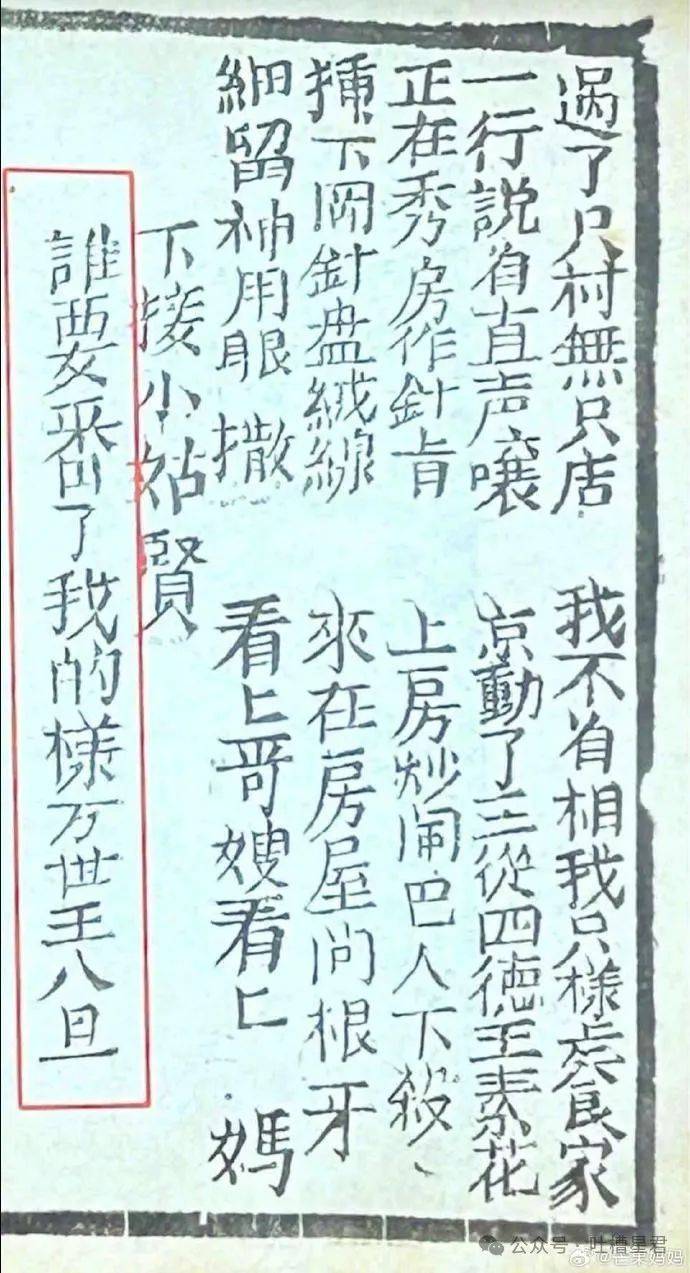 過了只村無只店　我不省相我只樣家
一行説省直声嚷　京動了三從四德王素花
正在秀房作針旨　上房炒闹巴人下殺
下岡針盘絨線　來在房屋问根牙
細留神用眼撒　看匕哥嫂看匕媽
下接小姑賢
誰要番了我的樣万世王八旦
公众号・吐槽星君
@芒果妈妈